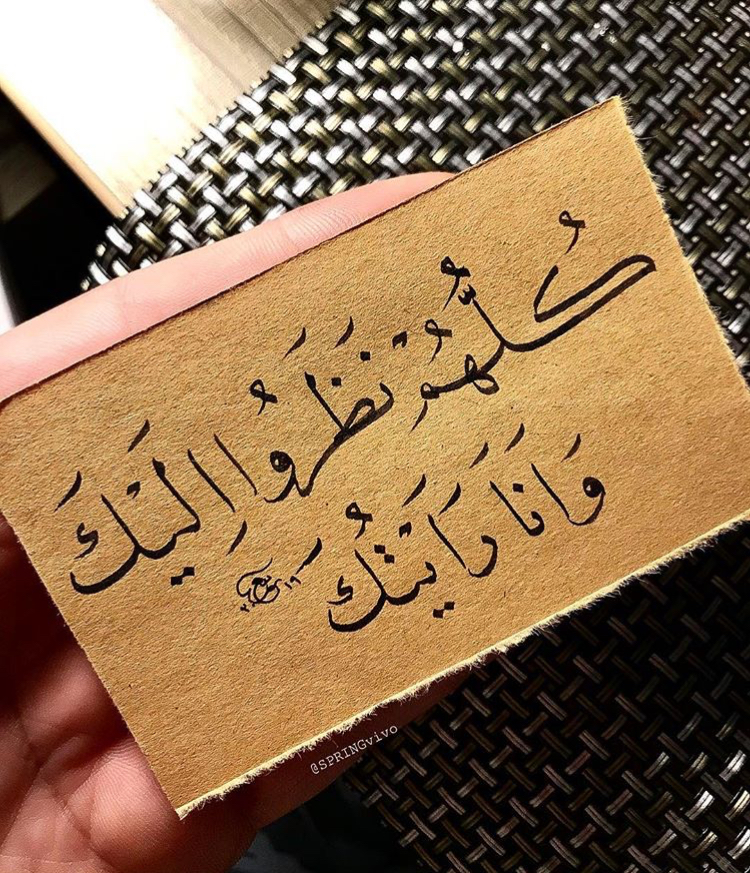 كُلُّهُمْ نَظَرُوا اِلَيْكَ
وَاَنَا رَاَيْتُكَ
@SPRINGvivo